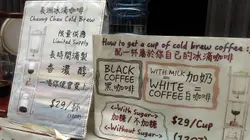 長洲冰滴咖啡
Cheung Chau Cold Brew
限量供應
Limited Supply
長時間滴製
香濃醇
$29/
How to get a cup of cold brew coffee:
配一杯屬於你自己的冰滴咖啡
BLACK
COFFEE
黑咖啡
WITH MILK 加奶
WHITE =
COFFEE 白咖啡
<With Sugar>
加糖/不加糖
<Without Sugar>
$29/